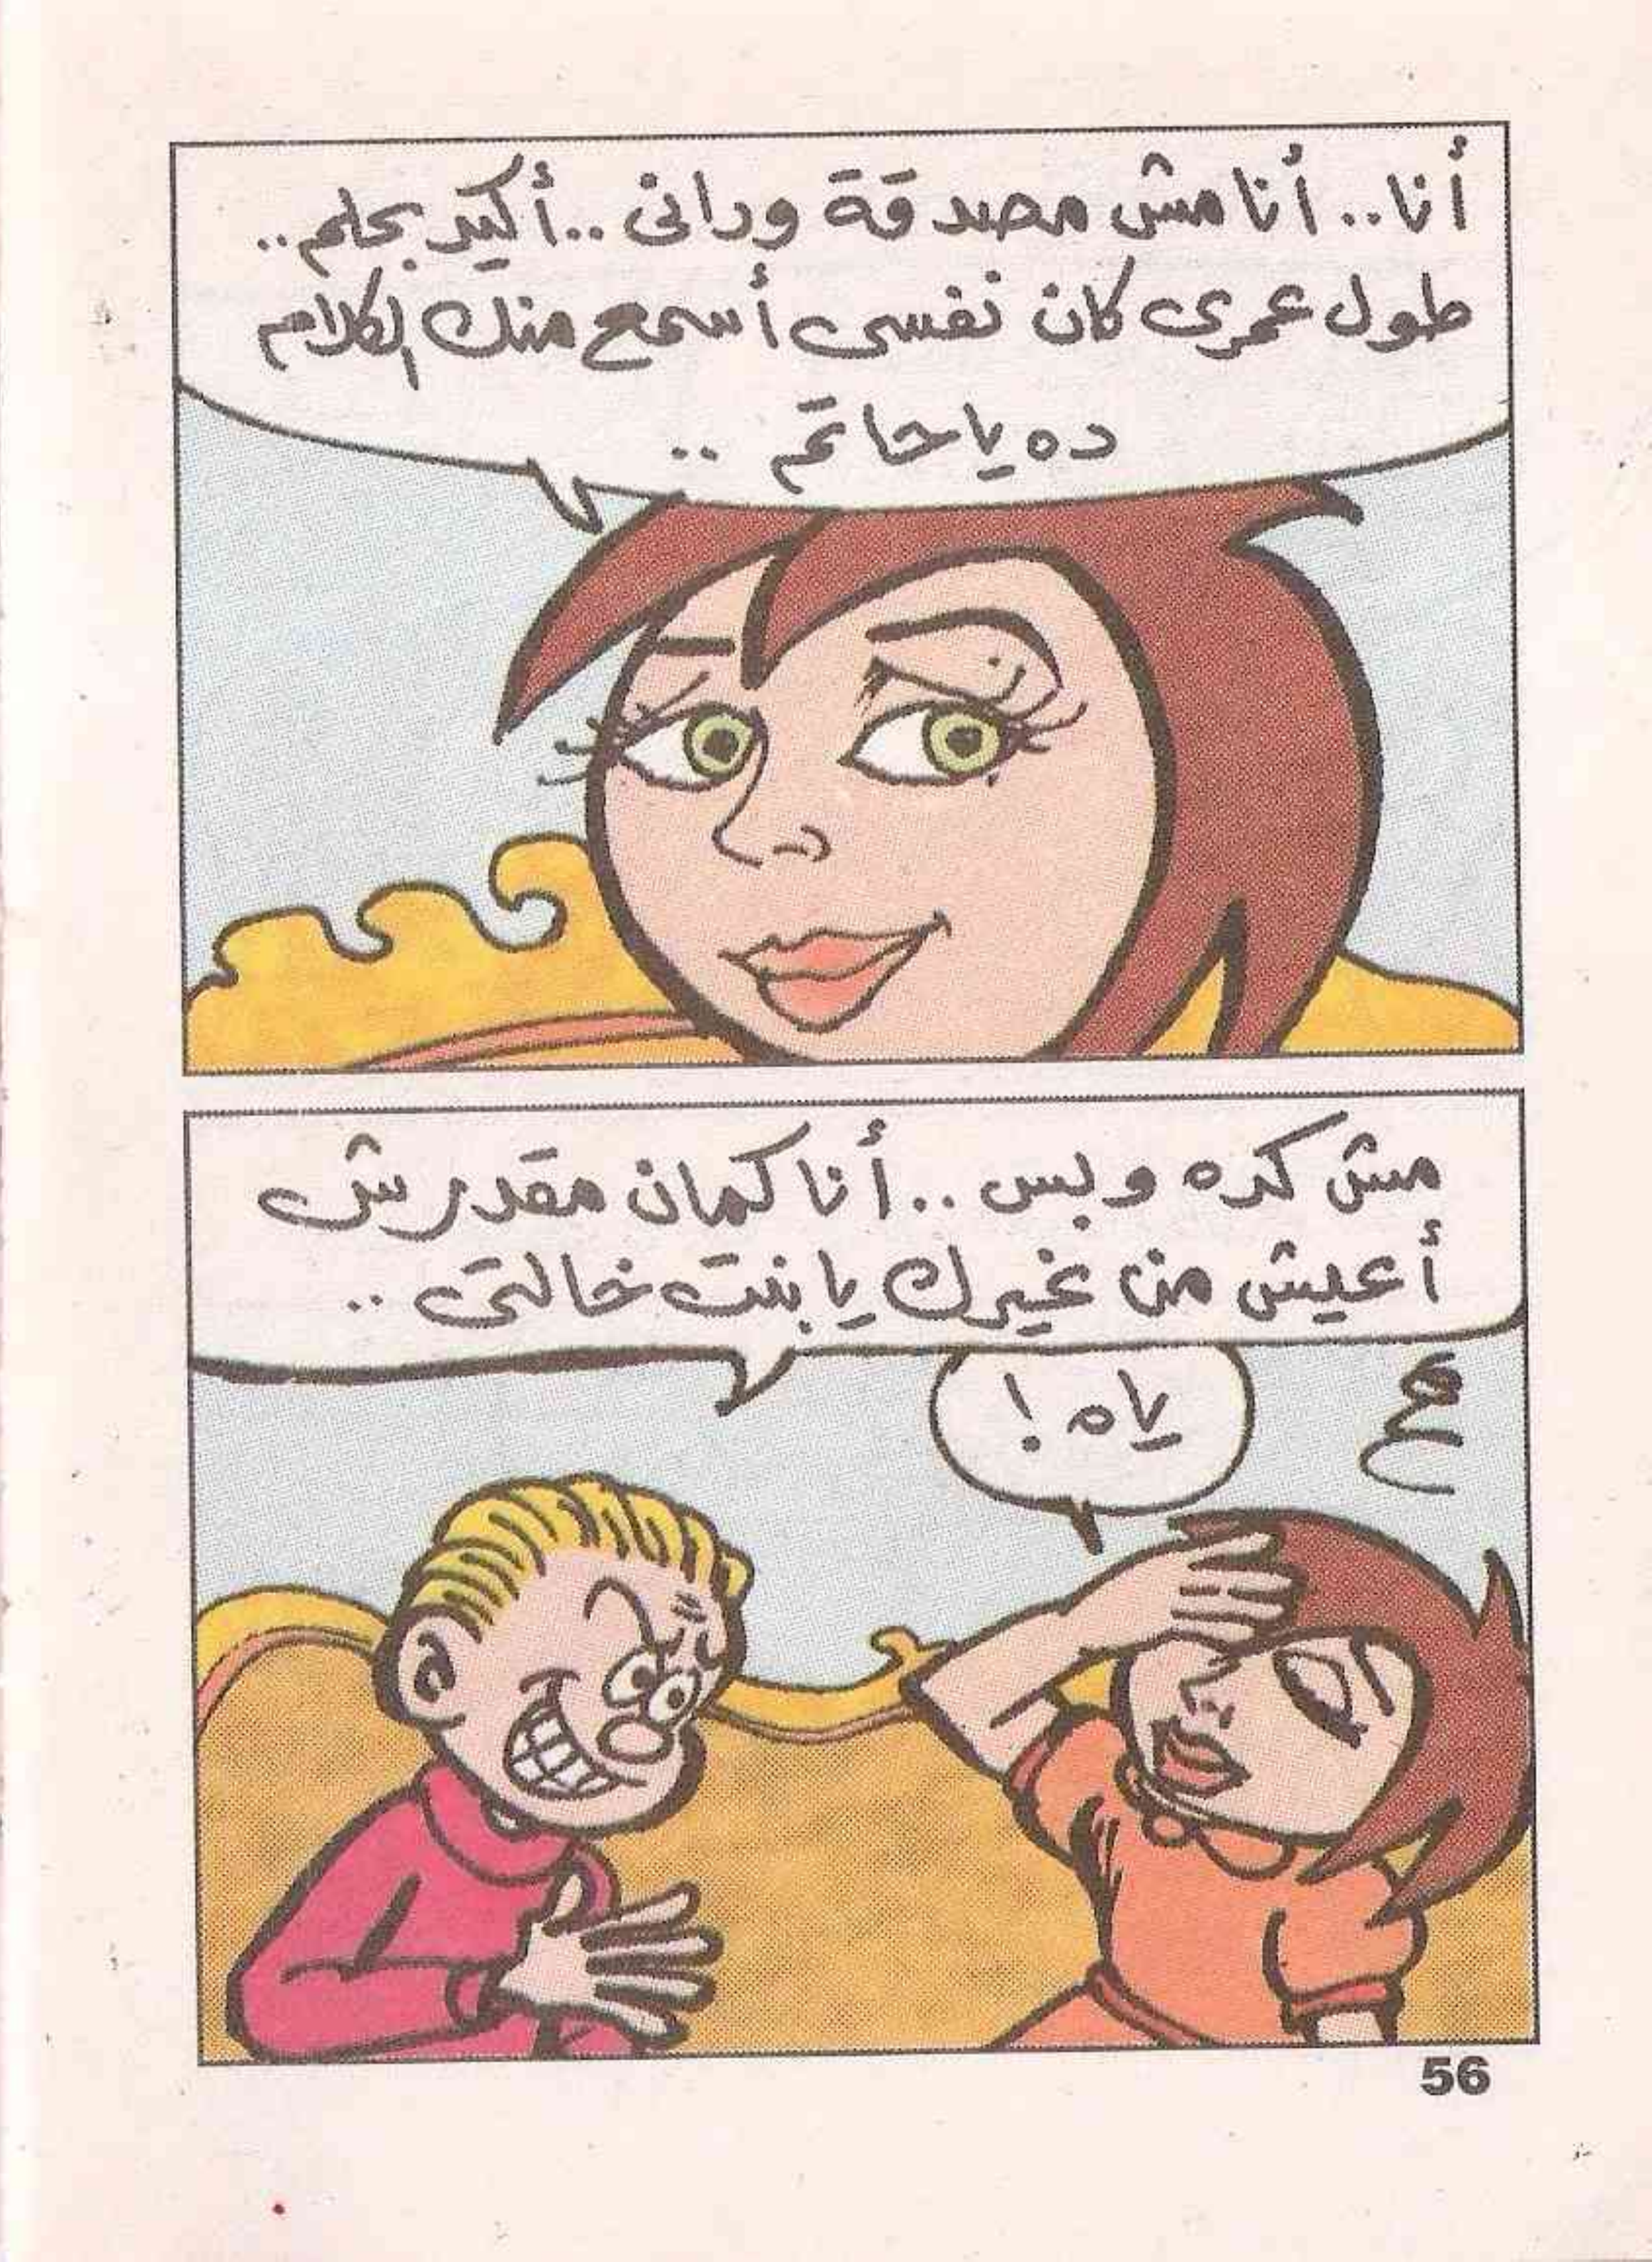 أنا.. أنا مش مصدقة ودانى.. أكيد بحلم..
طول عمرى كان نفسى أسمع منك الكلام
ده يا حاتم ..
مش كده وبس .. أنا كمان مقدرش
أعيش من غيرك يا بنت خالتى ..
ياه !
56